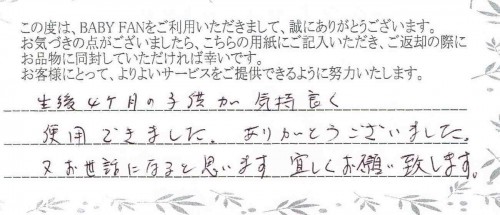 この度は、BABY FANをご利用いただきまして、誠にありがとうございます。
お気づきの点がございましたら、こちらの用紙にご記入いただき、ご返却の際に
お品物に同封していただければ幸いです。
お客様にとって、よりよいサービスをご提供できるように努力いたします。
生後4ケ月の子供が気持良く
使用できました。ありがとうございました。
又お世話になると思います宜しくお願い致します。